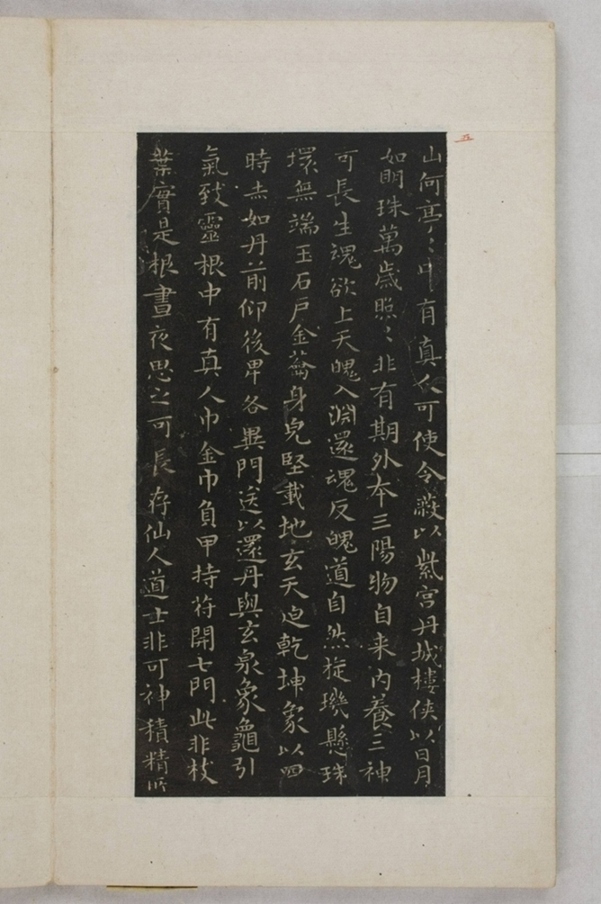 山何亭〻中有真人可使令蔽以紫宮丹城樓俠以日月
如明珠萬歲照〻非有期外本三陽物自来内養三神
可長生魂欲上天魄入淵還魂反魄道自然旋璣懸珠
環無端玉石戶金蘥身皃堅載地玄天迫乾坤象以四
時赤如丹前仰後卑各異門送以還丹與玄泉象龜引
氣致靈根中有真人巾金巾負甲持苻開七門此非枝
葉實是根晝夜思之可長存仙人道士非可神積精所